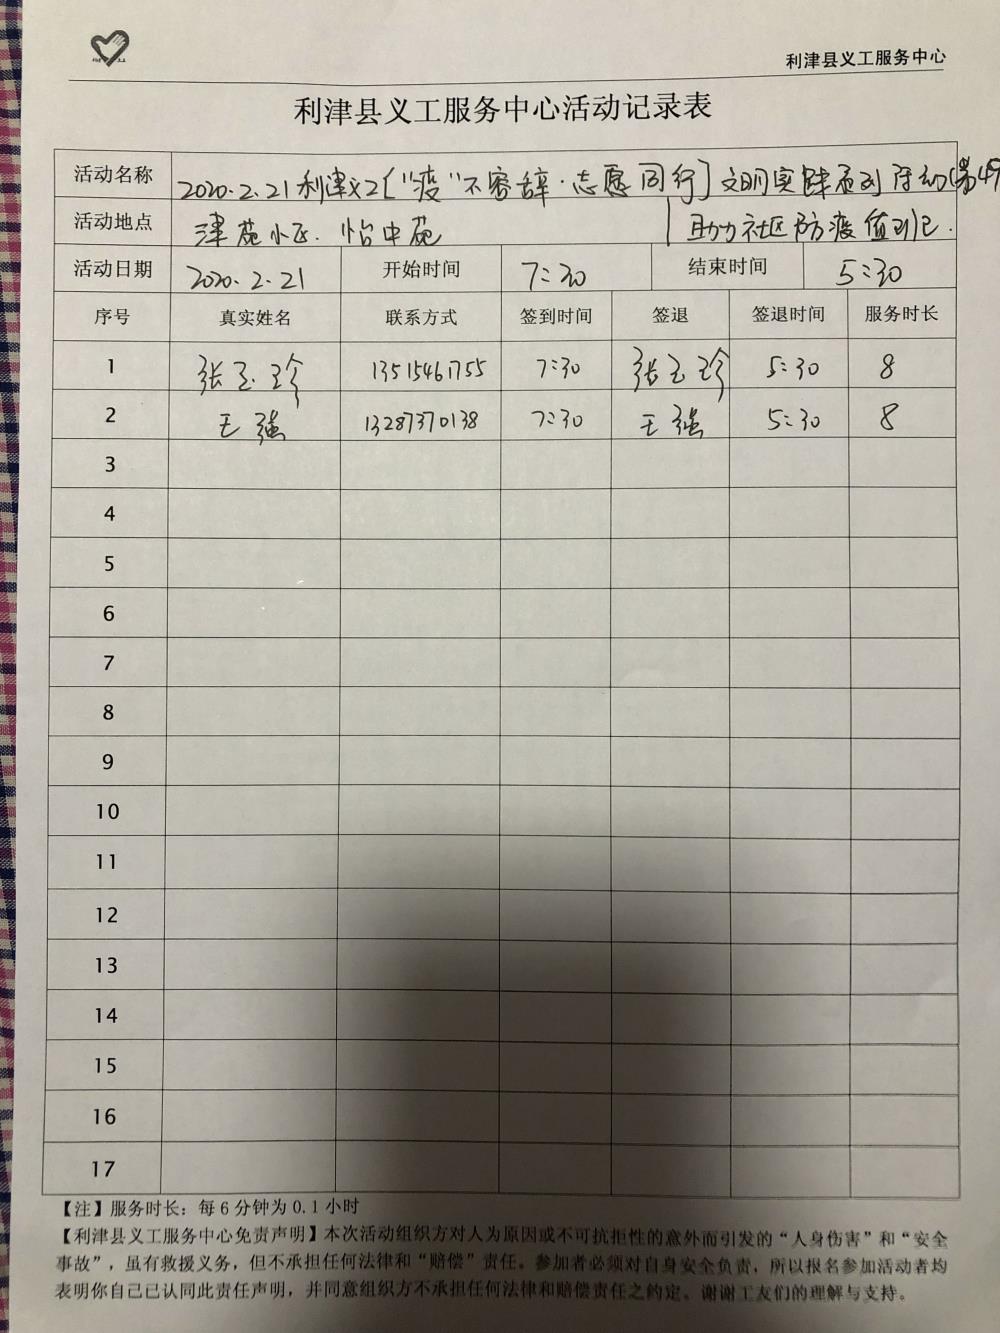 利津县义工服务中心
利津县义工服务中心活动记录表
活动名称 2020.2.21利津义工〔“疫”不容辞·志愿同行〕文明实践系列活动(第45
活动地点 津苑小区. 怡中苑 助力社区防疫值班记.
活动日期 2020.2.21 开始时间 7:30 结束时间 5:30
序号 真实姓名 联系方式 签到时间 签退 签退时间 服务时长
1 张玉珍 13515461755 7:30 张玉珍 5:30 8
2 王强 13287370138 7:30 王强 5:30 8
3
4
5
6
7
8
9
10
11
12
13
14
15
16
17
【注】服务时长：每6分钟为0.1小时
【利津县义工服务中心免责声明】本次活动组织方对人为原因或不可抗拒性的意外而引发的“人身伤害”和“安全
事故”，虽有救援义务，但不承担任何法律和“赔偿”责任。参加者必须对自身安全负责，所以报名参加活动者均
表明你自己已认同此责任声明，并同意组织方不承担任何法律和赔偿责任之约定。谢谢工友们的理解与支持。